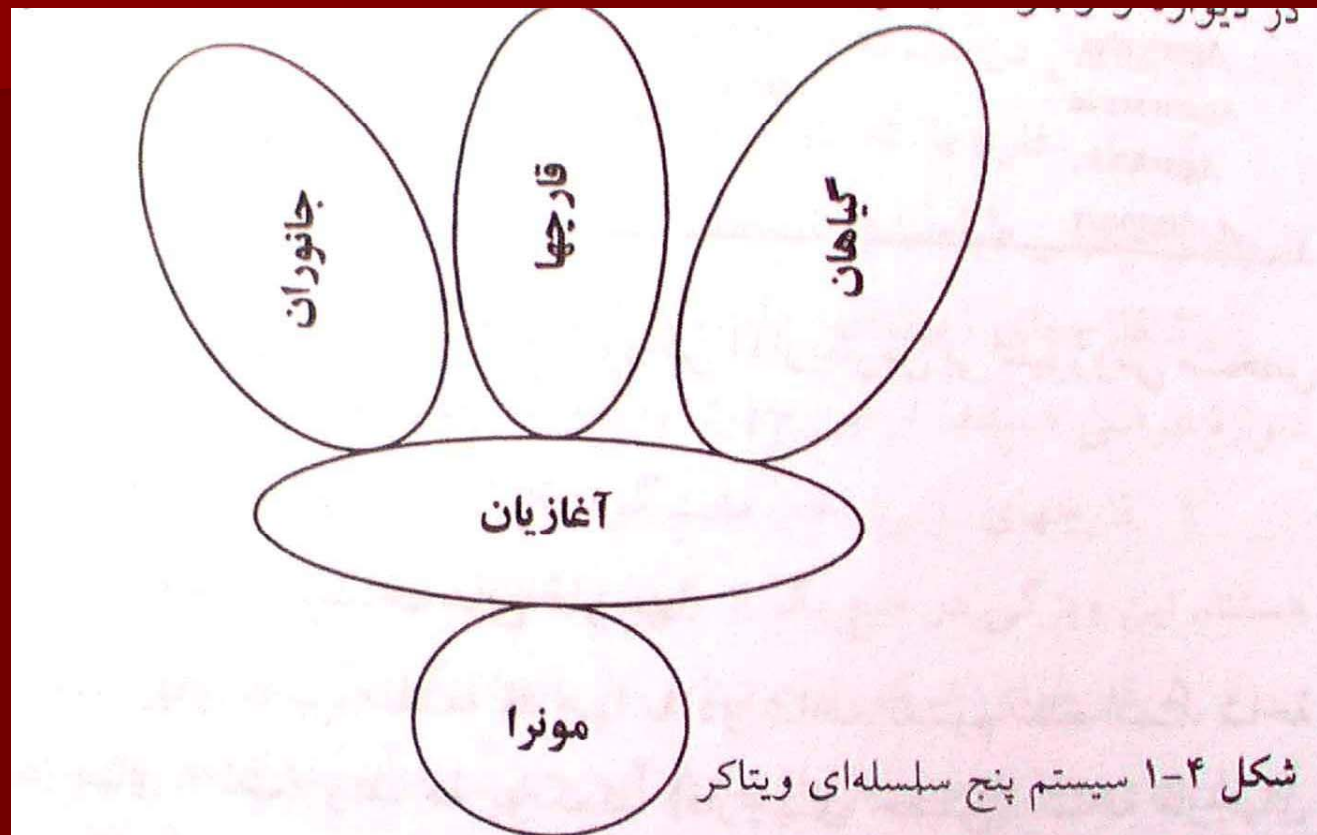 جانوران
قارچها
گیاهان
آغازیان
مونرا
شکل ۴-۱ سیستم پنج سلسله‌ای ویتاکر